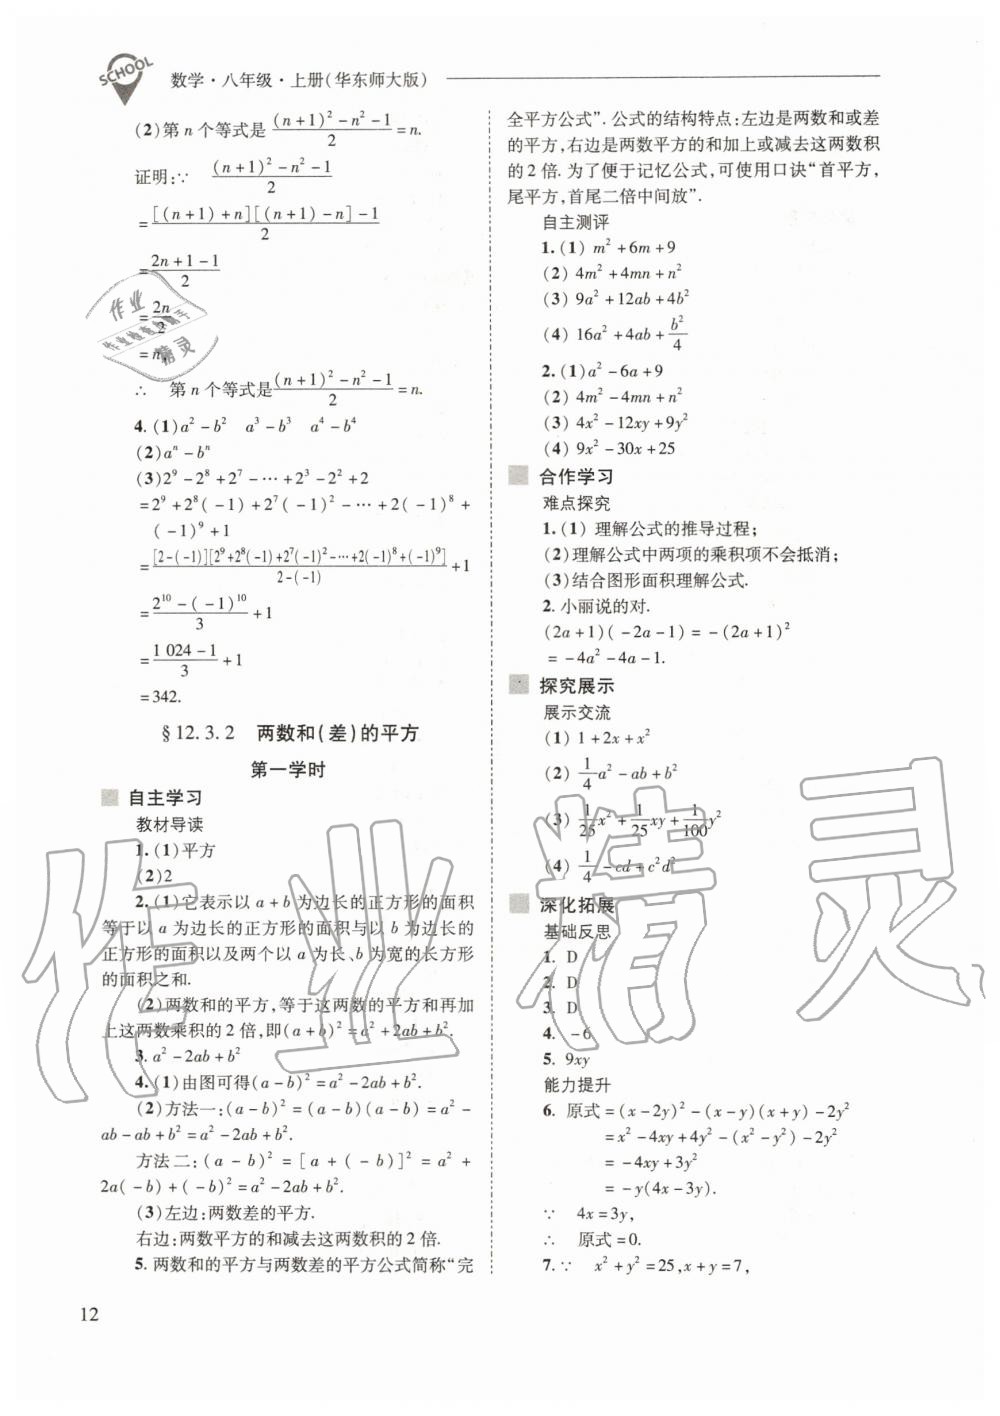 SCHOOL
数学·八年级·上册(华东师大版)
(2)第 n 个等式是 \frac{(n+1)^2-n^2-1}{2}=n.
证明:∵ \frac{(n+1)^2-n^2-1}{2}
=\frac{[(n+1)+n][(n+1)-n]-1}{2}
=\frac{2n+1-1}{2}
=\frac{2n}{2}
=n,
∴ 第 n 个等式是\frac{(n+1)^2-n^2-1}{2}=n.
4. (1)a²-b² a³-b³ a⁴-b⁴
(2)aⁿ-bⁿ
(3)2⁹-2⁸+2⁷-…+2³-2²+2
=2⁹+2⁸(-1)+2⁷(-1)²-…+2(-1)⁸+
(-1)⁹+1
=\frac{[2-(-1)][2⁹+2⁸(-1)+2⁷(-1)²-…+2(-1)⁸+(-1)⁹]}{2-(-1)}+1
=\frac{2^{10}-(-1)^{10}}{3}+1
=\frac{1 024-1}{3}+1
=342.
§12.3.2 两数和(差)的平方
第一学时
自主学习
教材导读
1. (1)平方
(2)2
2. (1)它表示以 a+b 为边长的正方形的面积
等于以 a 为边长的正方形的面积与以 b 为边长的
正方形的面积以及两个以 a 为长、b 为宽的长方形
的面积之和.
(2)两数和的平方,等于这两数的平方和再加
上这两数乘积的 2 倍,即(a+b)²=a²+2ab+b².
3. a²-2ab+b²
4. (1)由图可得(a-b)²=a²-2ab+b².
(2)方法一:(a-b)²=(a-b)(a-b)=a²-
ab-ab+b²=a²-2ab+b².
方法二:(a-b)²=[a+(-b)]²=a²+
2a(-b)+(-b)²=a²-2ab+b².
(3)左边:两数差的平方.
右边:两数平方的和减去这两数积的 2 倍.
5. 两数和的平方与两数差的平方公式简称“完
全平方公式”. 公式的结构特点:左边是两数和或差
的平方,右边是两数平方的和加上或减去这两数积
的 2 倍. 为了便于记忆公式,可使用口诀“首平方,
尾平方,首尾二倍中间放”.
自主测评
1. (1) m²+6m+9
(2) 4m²+4mn+n²
(3) 9a²+12ab+4b²
(4) 16a²+4ab+\frac{b²}{4}
2. (1)a²-6a+9
(2) 4m²-4mn+n²
(3) 4x²-12xy+9y²
(4) 9x²-30x+25
合作学习
难点探究
1. (1) 理解公式的推导过程;
(2)理解公式中两项的乘积项不会抵消;
(3)结合图形面积理解公式.
2. 小丽说的对.
(2a+1)(-2a-1)=-(2a+1)²
=-4a²-4a-1.
探究展示
展示交流
(1) 1+2x+x²
(2) \frac{1}{4}a²-ab+b²
(3) \frac{1}{25}x²+\frac{1}{25}xy+\frac{1}{100}y²
(4) \frac{1}{4}-cd+c²d²
深化拓展
基础反思
1. D
2. D
3. D
4. -6
5. 9xy
能力提升
6. 原式=(x-2y)²-(x-y)(x+y)-2y²
=x²-4xy+4y²-(x²-y²)-2y²
=-4xy+3y²
=-y(4x-3y).
∵ 4x=3y,
∴ 原式=0.
7. ∵ x²+y²=25,x+y=7,
12
作业
作业检查小助手
精灵
作业精灵